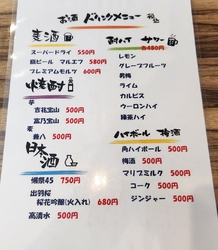 お酒 ドリンクメニュー 税込
麦酒
スーパードライ 550円
樽ビール マルエフ 580円
プレミアムモルツ 600円
焼酎
芋
吉花宝山 500円
富乃宝山 500円
麦
兼八 500円
日本酒
獺祭45 750円
出羽桜
桜花吟醸(火入れ) 680円
高清水 500円
酎ハイ サワー
各480円
レモン
グレープフルーツ
男梅
ライム
カルピス
ウーロンハイ
緑茶ハイ
ハイボール 梅酒
角ハイボール 500円
梅酒 500円
マリブミルク 500円
コーク 500円
ジンジャー 500円